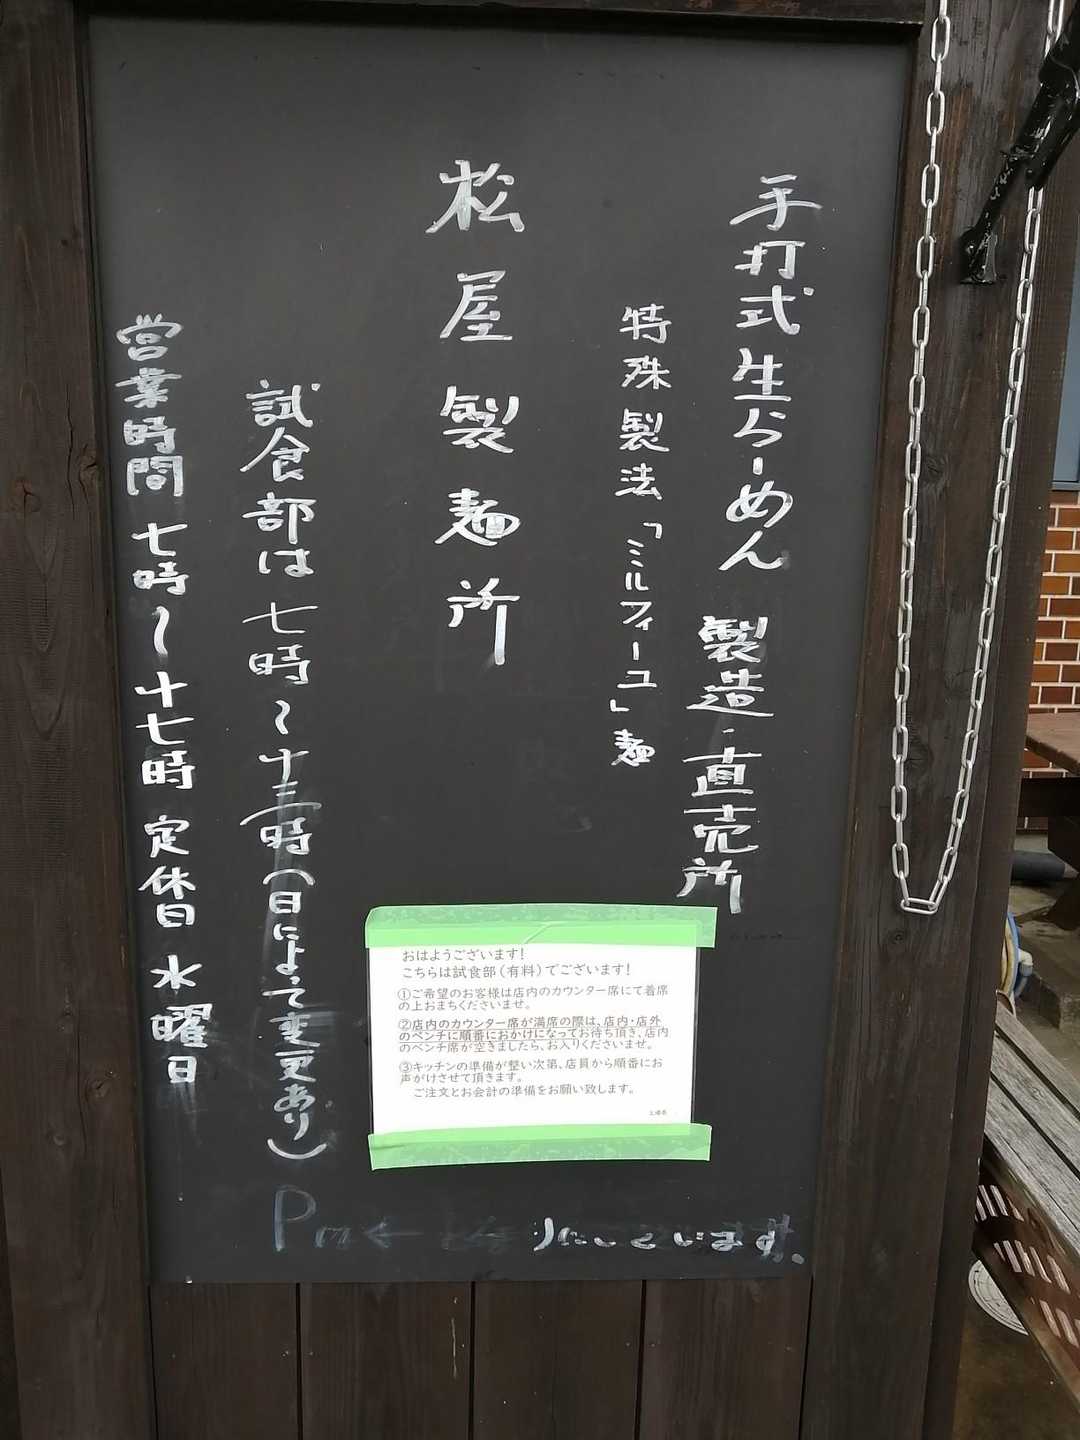 手打式生らーめん 製造・直売所
特殊製法「ミルフィーユ」麺
松屋製麺所
試食部は七時～十三時(日によって変更あり)
営業時間 七時～十七時 定休日 水曜日
おはようございます!
こちらは試食部(有料)でございます!
①ご希望のお客様は店内のカウンター席にて着席
の上おまちくださいませ。
②店内のカウンター席が満席の際は、店内・店外
のベンチに順番におかけになってお待ち頂き、店内
のベンチ席が空きましたら、お入りくださいませ。
③キッチンの準備が整い次第、店員から順番にお
声がけさせて頂きます。
ご注文とお会計の準備をお願い致します。